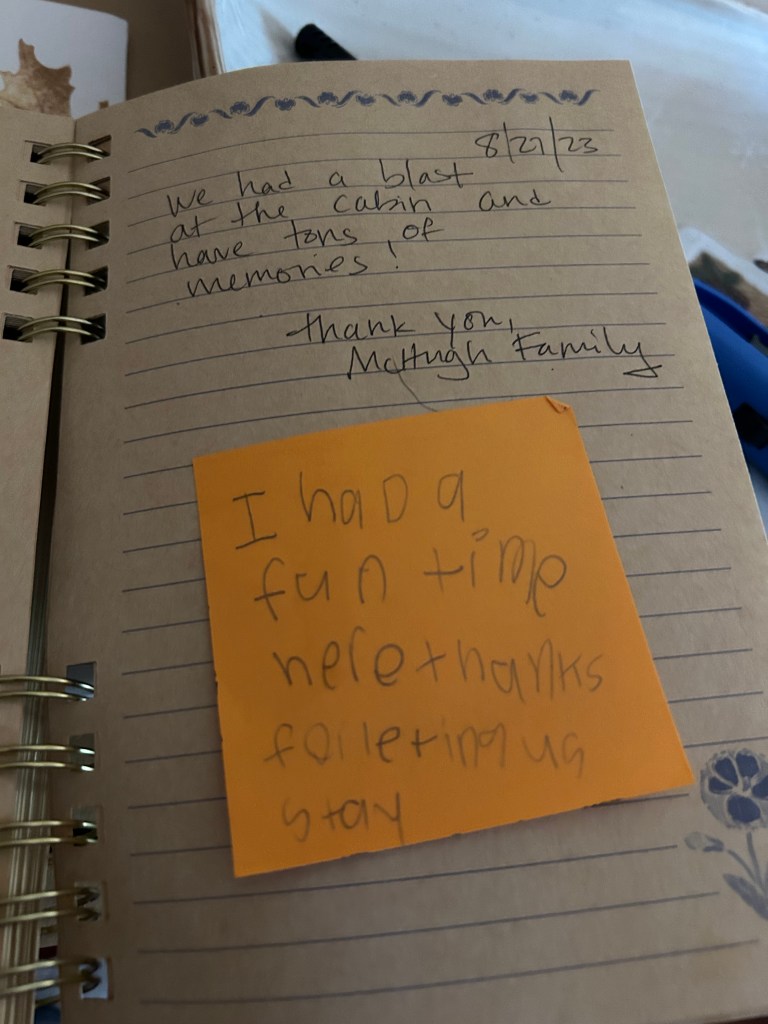 8/27/23
We had a blast
at the cabin and
have tons of
memories!
thank you,
McHugh Family
I had a
fun time
here thanks
for leting us
stay